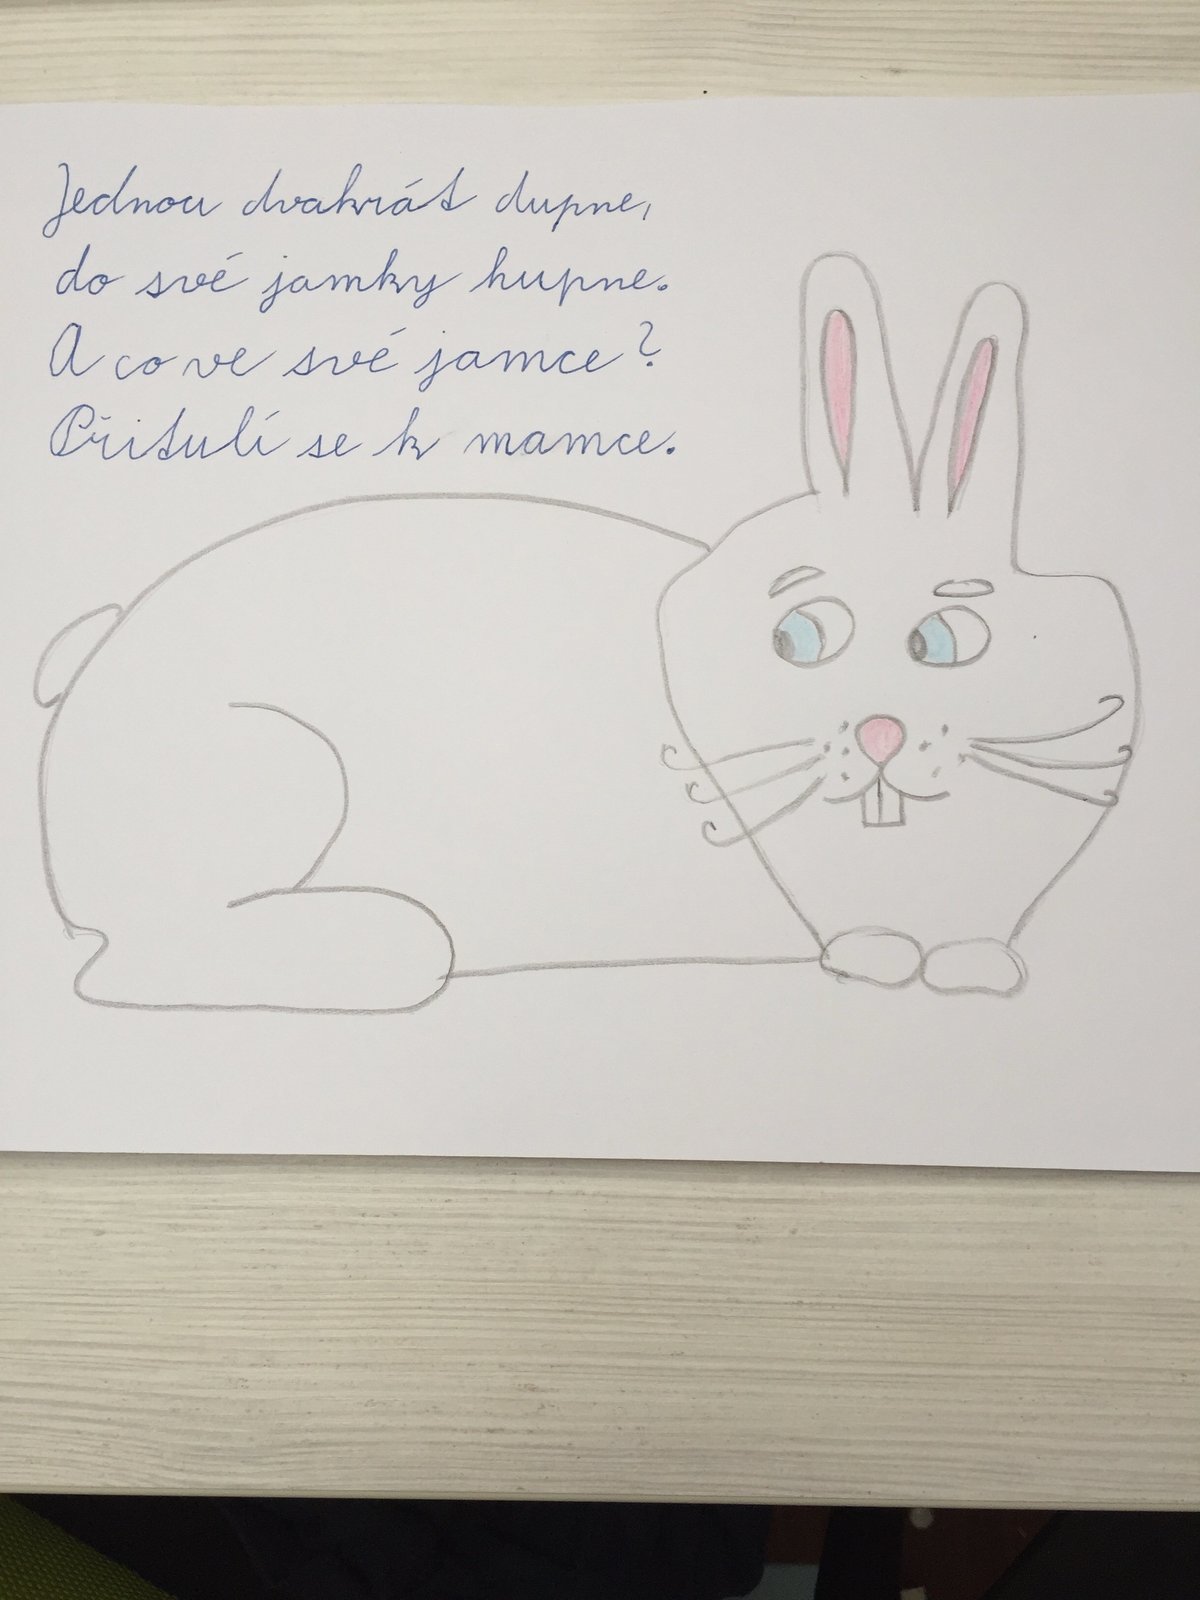 Jednou dvakrát dupne,
do své jamky hupne.
A co ve své jamce?
Přitulí se k mamce.